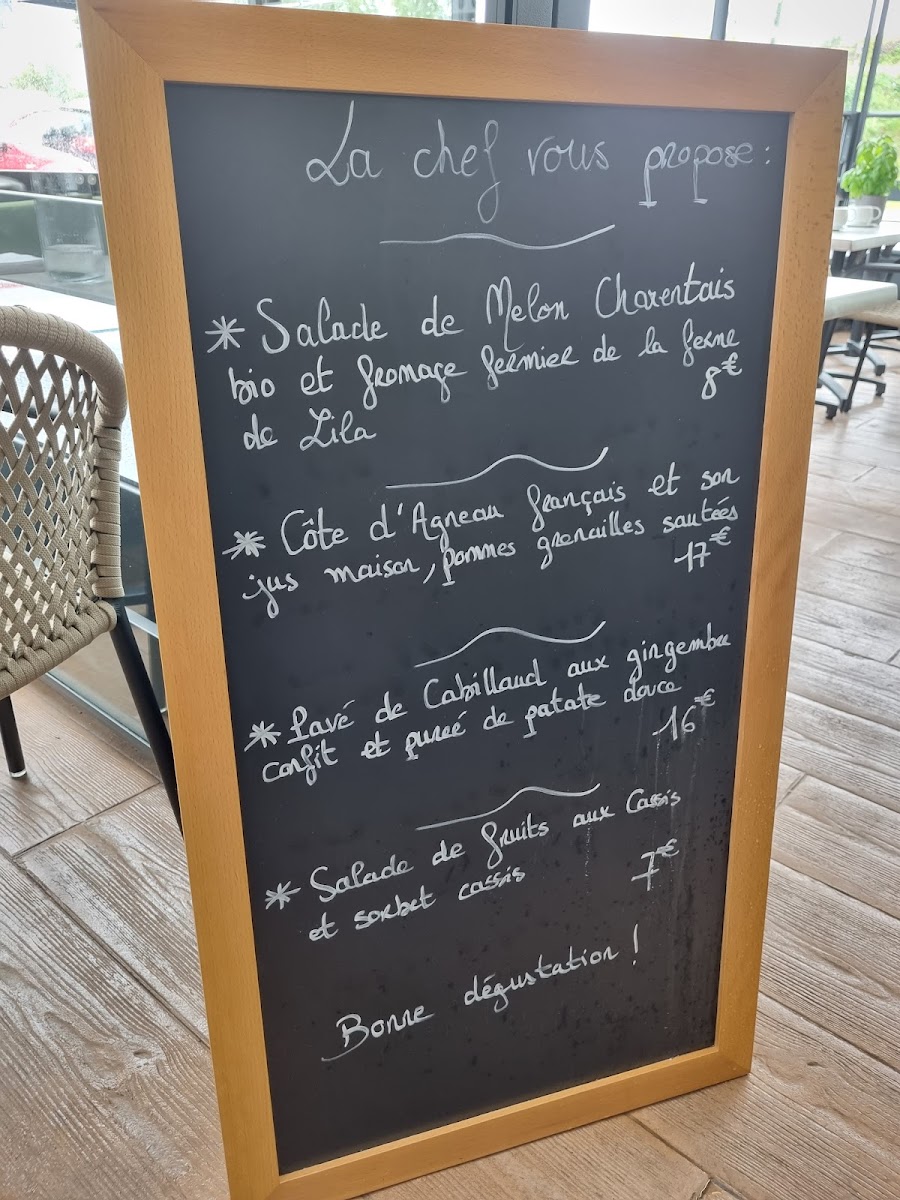 La chef vous propose :
* Salade de Melon Charentais
bio et fromage fermier de la ferme
de Lila 8€
* Côte d'Agneau français et son
jus maison, pommes grenailles sautées
17€
* Pavé de Cabillaud aux gingembre
confit et pureé de patate douce
16€
* Salade de fruits aux Cassis
et sorbet cassis 7€
Bonne dégustation !